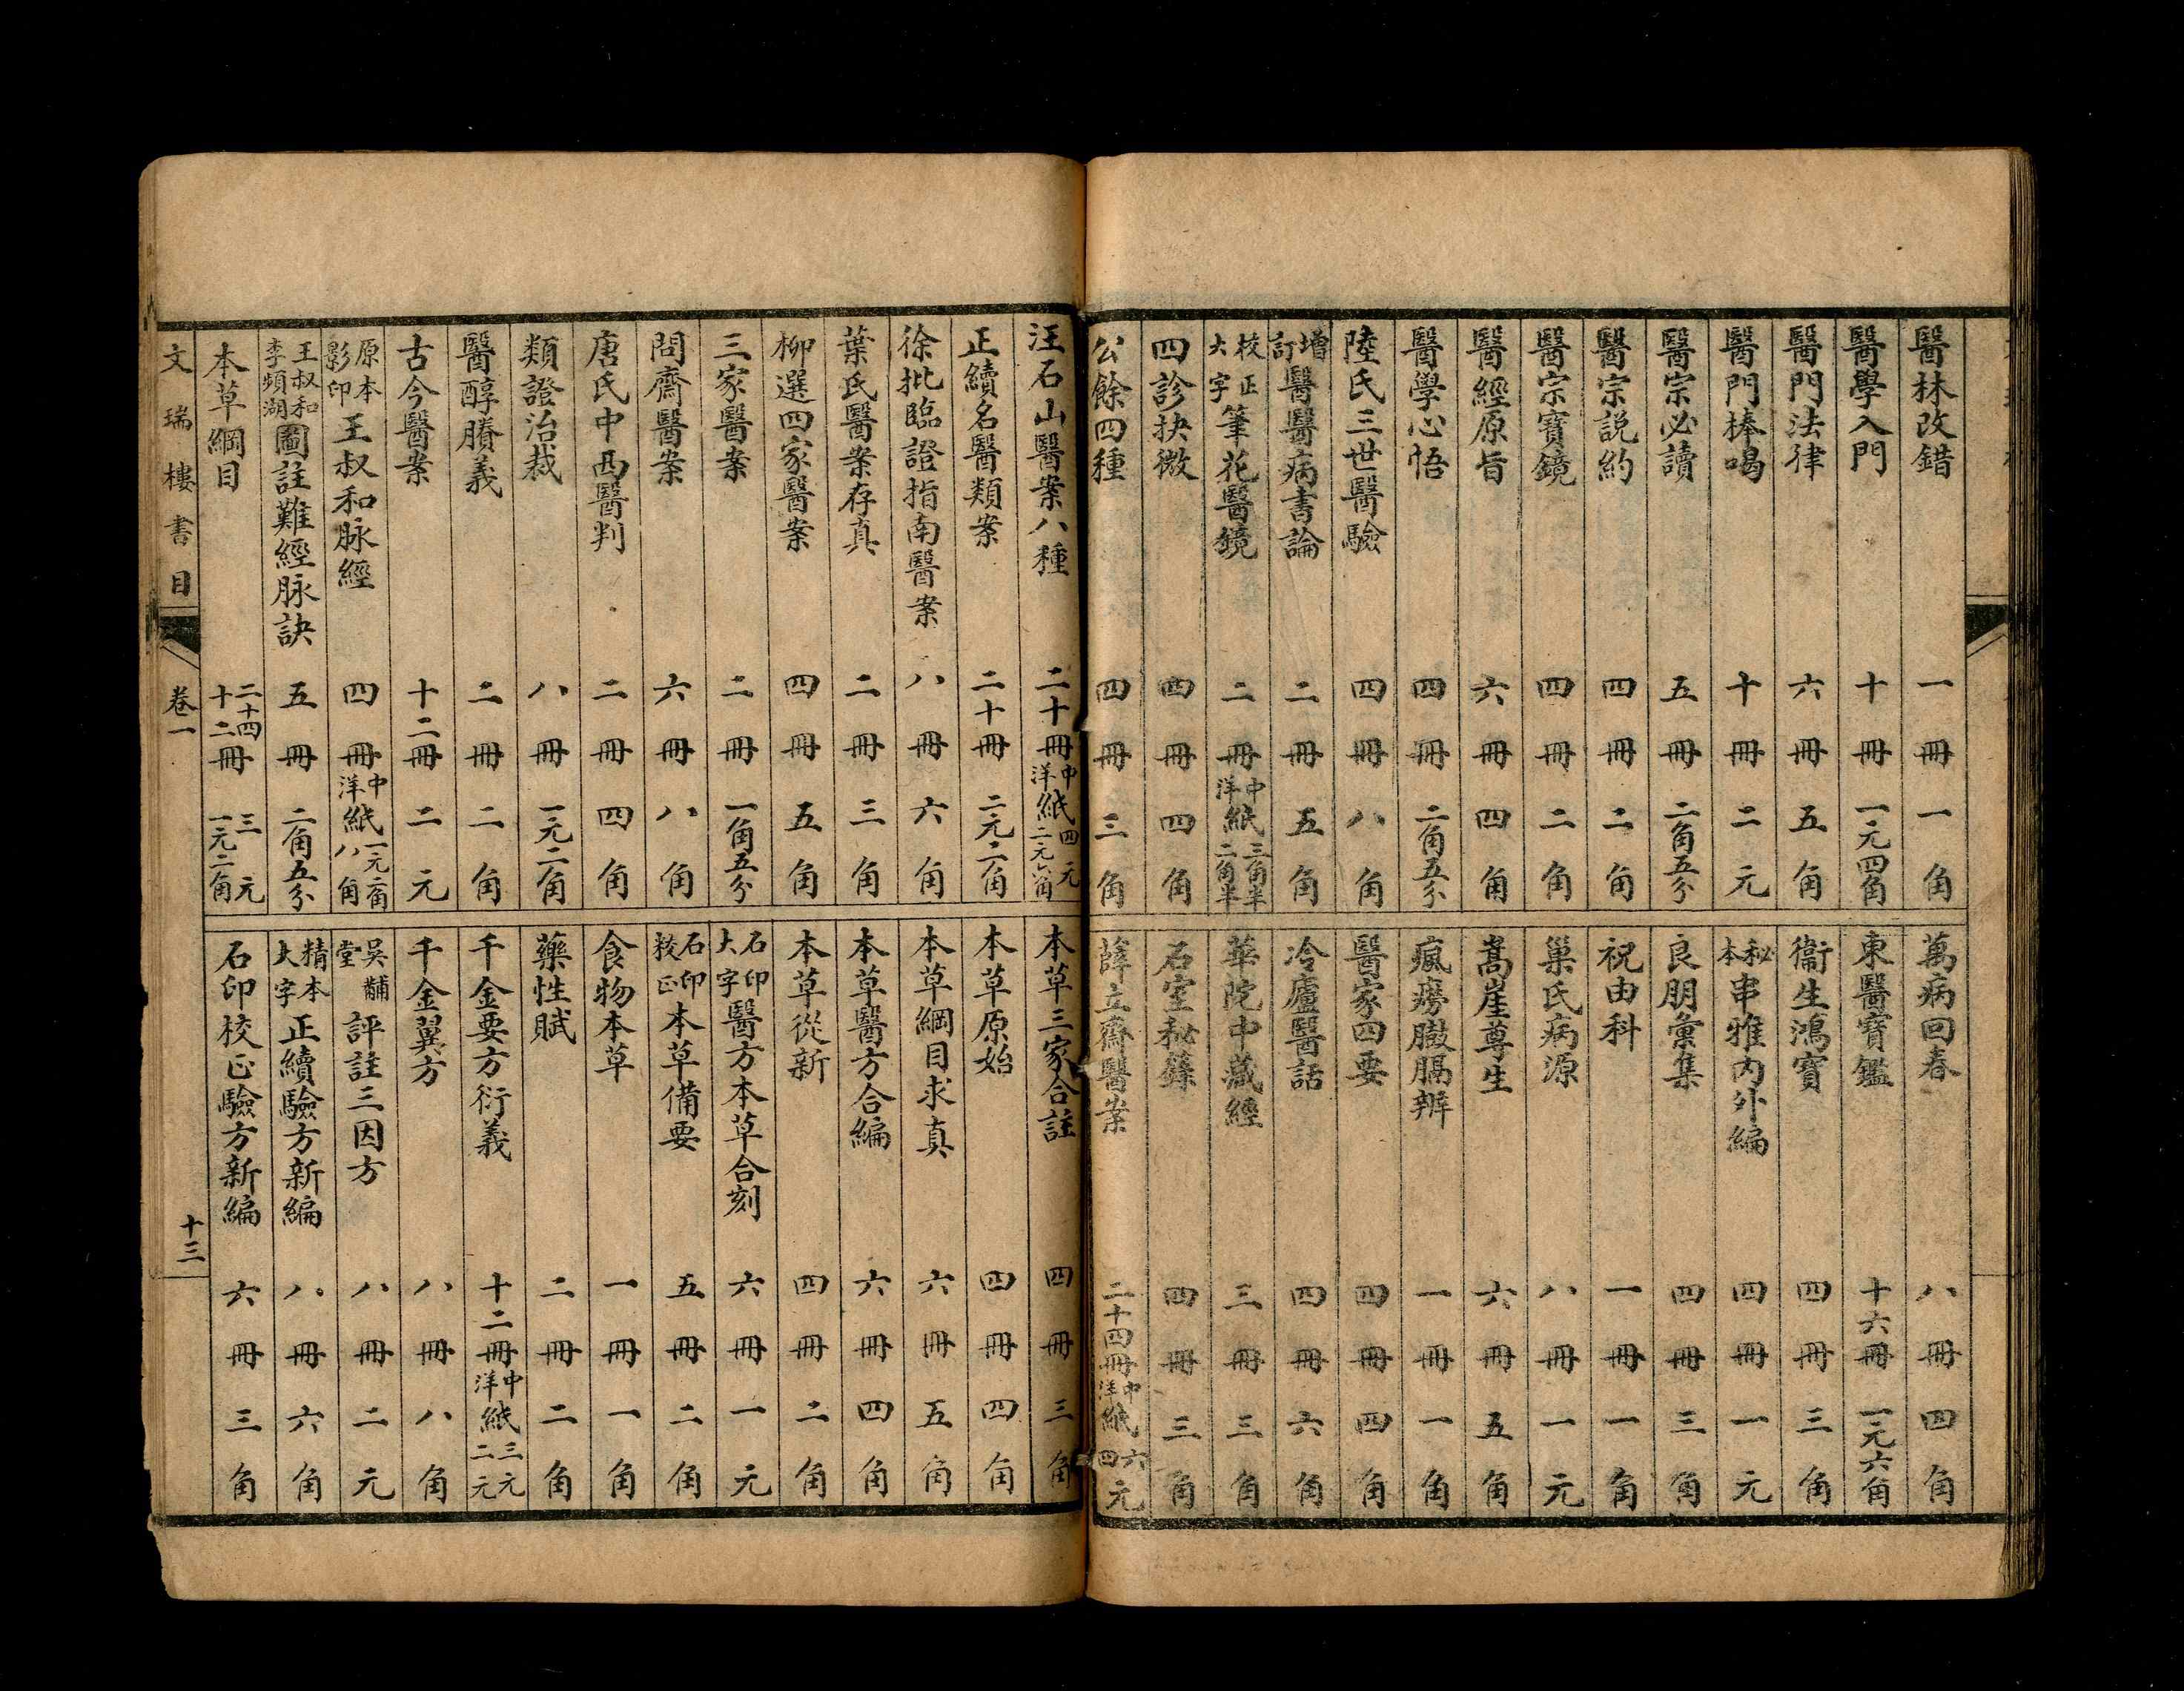 醫林改錯 一冊 一角
醫學入門 十冊 一元四角
醫門法律 六冊 五角
醫門棒喝 十冊 二元
醫宗必讀 五冊 二角五分
醫宗說約 四冊 二角
醫宗寶鏡 四冊 二角
醫經原旨 六冊 四角
醫學心悟 四冊 二角五分
陸氏三世醫驗 四冊 八角
增訂醫醫病書論 二冊 五角
校正大字筆花醫鏡 二冊 中洋紙 三角半 二角半
四診抉微 四冊 四角
公餘四種 四冊 三角
萬病回春 八冊 四角
東醫寶鑑 十六冊 一元六角
衞生鴻寶 四冊 三角
秘本串雅內外編 四冊 一元
良朋彙集 四冊 三角
祝由科 一冊 一角
巢氏病源 八冊 一元
嵩崖尊生 六冊 五角
瘋癆臌膈辨 一冊 一角
醫家四要 四冊 四角
冷廬醫話 四冊 六角
華陀中藏經 三冊 三角
石室秘籙 四冊 三角
薛立齋醫案 二十四冊 中洋紙 六四元
汪石山醫案八種 二十冊 中洋紙 四元 二元八角
正續名醫類案 二十冊 二元二角
徐批臨證指南醫案 八冊 六角
葉氏醫案存真 二冊 三角
柳選四家醫案 四冊 五角
三家醫案 二冊 一角五分
問齋醫案 六冊 八角
唐氏中西醫判 二冊 四角
類證治裁 八冊 一元二角
醫醇賸義 二冊 二角
古今醫案 十二冊 二元
原本影印王叔和脉經 四冊 中洋紙 一元二角 八角
王叔和李頻湖圖註難經脉訣 五冊 二角五分
本草綱目 二十四 十二冊 三元 一元二角
本草三家合註 四冊 三角
本草原始 四冊 四角
本草綱目求真 六冊 五角
本草醫方合編 六冊 四角
本草從新 四冊 二角
石印大字醫方本草合刻 六冊 一元
石印校正本草備要 五冊 二角
食物本草 一冊 一角
藥性賦 二冊 二角
千金要方衍義 十二冊 中洋紙 三元 二元
千金翼方 八冊 八角
吳黼堂評註三因方 八冊 二元
精本大字正續驗方新編 八冊 六角
石印校正驗方新編 六冊 三角
文瑞樓書目 卷一 十三